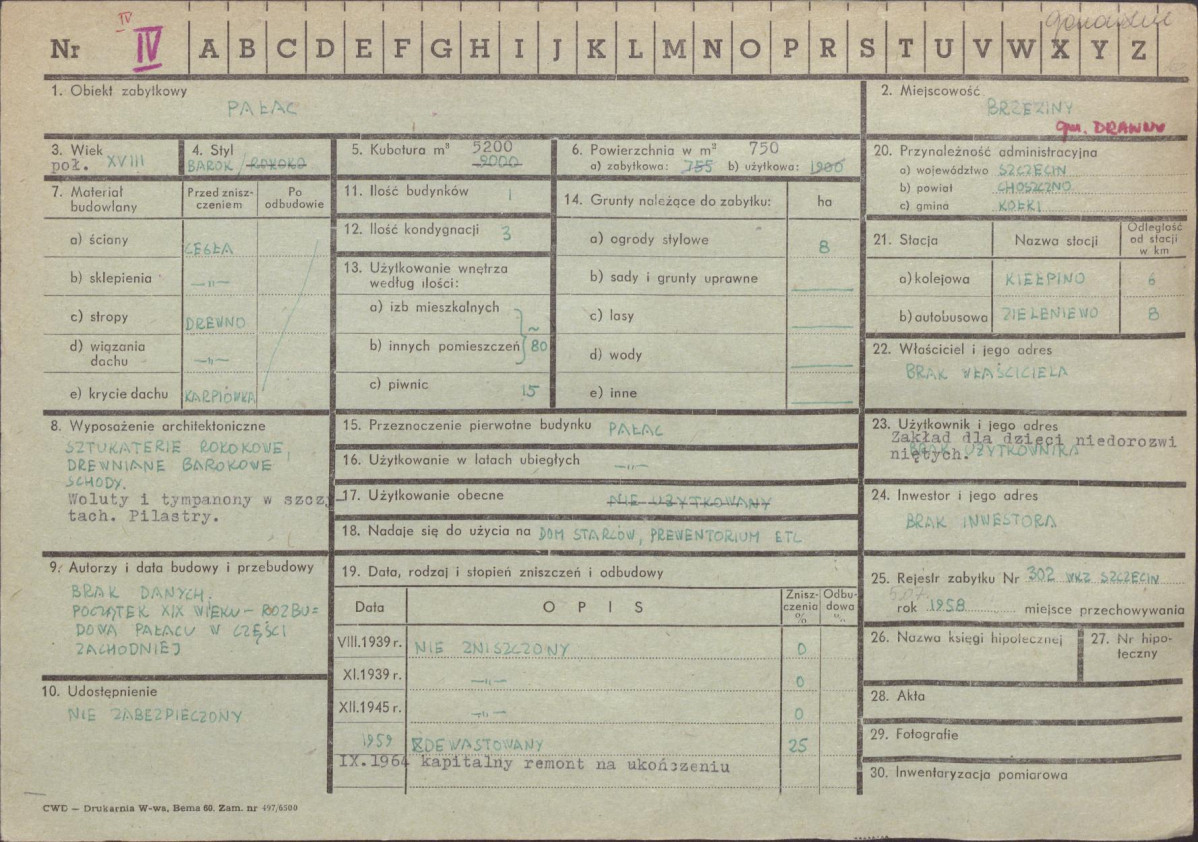 IV
Nr IV A B C D E F G H I J K L M N O P R S T U V W X Y Z
1. Obiekt zabytkowy
PAŁAC
2. Miejscowość
BRZEZINY
gm. DRAWNO
3. Wiek
poł. XVIII
4. Styl
BAROK/ROKOKO
5. Kubatura m³ 5200
9000
6. Powierzchnia w m² 750
a) zabytkowa: 755 b) użytkowa: 1900
20. Przynależność administracyjna
a) województwo SZCZECIN
b) powiat CHOSZCZNO
c) gmina KOŁKI
7. Materiał budowlany
Przed zniszczeniem
Po odbudowie
a) ściany CEGŁA
b) sklepienia —"—
c) stropy DREWNO
d) wiązania dachu —"—
e) krycie dachu KARPIÓWKA
11. Ilość budynków 1
12. Ilość kondygnacji 3
13. Użytkowanie wnętrza
według ilości:
a) izb mieszkalnych
b) innych pomieszczeń ~ 80
c) piwnic 15
14. Grunty należące do zabytku: ha
a) ogrody stylowe 8
b) sady i grunty uprawne
c) lasy
d) wody
e) inne
21. Stacja
Nazwa stacji
Odległość od stacji w km
a) kolejowa KIEŁPINO 6
b) autobusowa ZIELENIEWO 8
22. Właściciel i jego adres
BRAK WŁAŚCICIELA
8. Wyposażenie architektoniczne
SZTUKATERIE ROKOKOWE,
DREWNIANE BAROKOWE
SCHODY.
Woluty i tympanony w szczy
tach. Pilastry.
15. Przeznaczenie pierwotne budynku PAŁAC
16. Użytkowanie w latach ubiegłych —"—
17. Użytkowanie obecne NIE UŻYTKOWANY
18. Nadaje się do użycia na DOM STARCÓW, PREWENTORIUM ETC
23. Użytkownik i jego adres
Zakład dla dzieci niedorozwi
niętych.
BRAK UŻYTKOWNIKA
24. Inwestor i jego adres
BRAK INWESTORA
9. Autorzy i data budowy i przebudowy
BRAK DANYCH.
POCZĄTEK XIX WIEKU – ROZBU=
DOWA PAŁACU W CZĘŚCI
ZACHODNIEJ
10. Udostępnienie
NIE ZABEZPIECZONY
19. Data, rodzaj i stopień zniszczeń i odbudowy
Data
OPIS
Zniszczenia %
Odbudowa %
VIII.1939 r. NIE ZNISZCZONY 0
XI.1939 r. —"— 0
XII.1945 r. —"— 0
1959 ZDEWASTOWANY 25
IX.1964 kapitalny remont na ukończeniu
25. Rejestr zabytku Nr 302 WKZ SZCZECIN
507
rok 1958 miejsce przechowywania
26. Nazwa księgi hipotecznej
27. Nr hipo-
teczny
28. Akta
29. Fotografie
30. Inwentaryzacja pomiarowa
CWD — Drukarnia W-wa, Bema 60. Zam. nr 497/6500